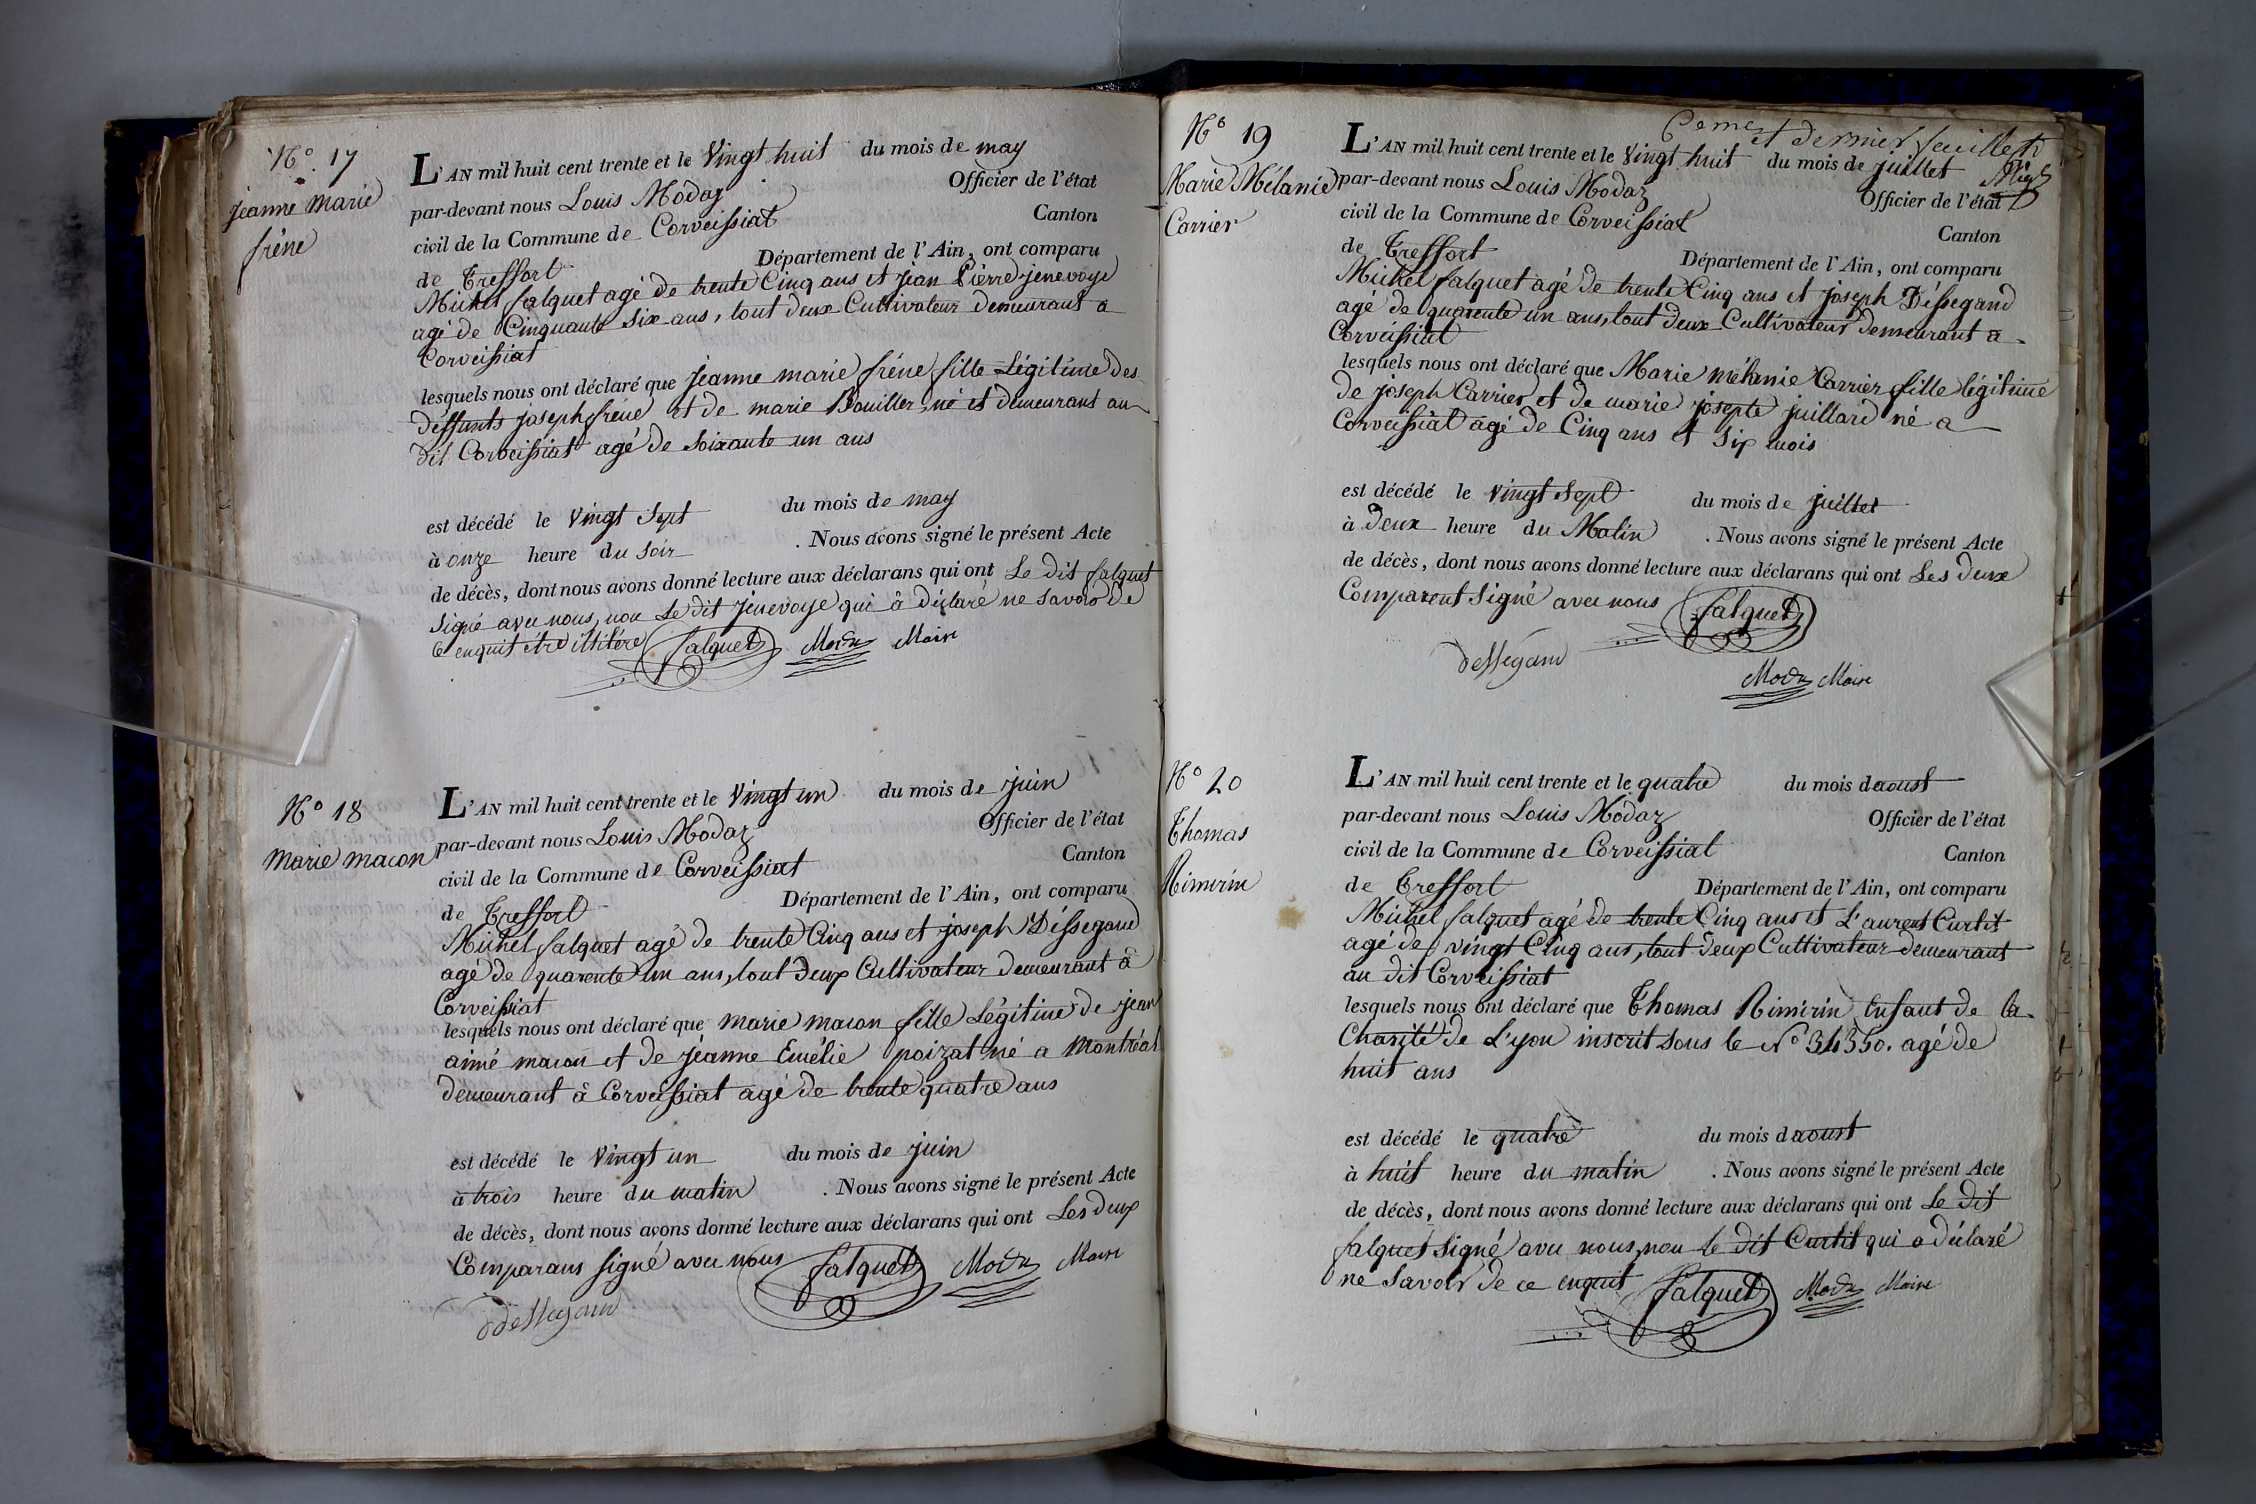 N.º 17
jeanne Marie
frêne
L'AN mil huit cent trente et le Vingt huit du mois de may
par-devant nous Louis Modaz Officier de l'état
civil de la Commune de Corveissiat Canton
de Treffort Département de l'Ain, ont comparu
Michel falquet agé de trente Cinq ans et jean Pierre jenevoye
agé de Cinquante Six ans, tout deux Cultivateur Demeurant a
Corveissiat
lesquels nous ont déclaré que jeanne marie frêne fille Légitime des
déffunts joseph frêne et de marie Bouiller, né et demeurant au
dit Corveissiat agé de Soixante un ans
est décédé le Vingt Sept du mois de may
à onze heure du Soir . Nous avons signé le présent Acte
de décès, dont nous avons donné lecture aux déclarans qui ont Le dit falquet
Signé avec nous, non Le dit jenevoye qui â déclaré ne Savoir De
ce enquit être illitéré falquet Modaz Maire
Nº 18
Marie macon
L'AN mil huit cent trente et le Vingt un du mois de juin
par-devant nous Louis Modaz Officier de l'état
civil de la Commune de Corveissiat Canton
de Treffort Département de l'Ain, ont comparu
Michel falquet agé de trente Cinq ans et joseph Déssegand
agé de quarente un ans, tout deux Cultivateur Demeurant à
Corveissiat
lesquels nous ont déclaré que marie macon fille Légitime de jean
aimé macon et de jéanne Emélie poizat né a Montréal
demeurant â Corveissiat agé de trente quatre ans
est décédé le Vingt un du mois de juin
à trois heure du matin . Nous avons signé le présent Acte
de décès, dont nous avons donné lecture aux déclarans qui ont Les deux
Comparans signé avec nous falquet Modaz Maire
dessegand
et dernier feuillet
Nº 19
Marie Mélanie
Carrier
L'AN mil huit cent trente et le Vingt huit du mois de juillet
par-devant nous Louis Modaz Officier de l'état
civil de la Commune de Corveissiat Canton
de Treffort Département de l'Ain, ont comparu
Michel falquet agé de trente Cinq ans et joseph Déssegand
agé de quarente un ans, tout deux Cultivateur Demeurant a
Corveissiat
lesquels nous ont déclaré que Marie Mélanie Carrier fille légitime
de joseph Carrier et de marie josepte juillard né a
Corveissiat agé de Cinq ans et Six mois
est décédé le Vingt Sept du mois de juillet
à Deux heure du Matin . Nous avons signé le présent Acte
de décès, dont nous avons donné lecture aux déclarans qui ont Les deux
Comparent Signé avec nous falquet
dessegand
Modaz Maire
Nº 20
Thomas
Rimirin
L'AN mil huit cent trente et le quatre du mois d aoust
par-devant nous Louis Modaz Officier de l'état
civil de la Commune de Corveissiat Canton
de Treffort Département de l'Ain, ont comparu
Michel falquet agé de trente Cinq ans et L'aurent Curtit
agé de vingt Cinq ans, tout deux Cultivateur demeurant
au dit Corveissiat
lesquels nous ont déclaré que Thomas Rimirin Enfant de la
Charité de L'yon inscrit Sous le Nº 34350. agé de
huit ans
est décédé le quatre du mois d aoust
à huit heure du matin . Nous avons signé le présent Acte
de décès, dont nous avons donné lecture aux déclarans qui ont Le dit
falquet Signé avec nous, non le dit Curtit qui a déclaré
ne Savoir de ce enquit falquet Modaz Maire